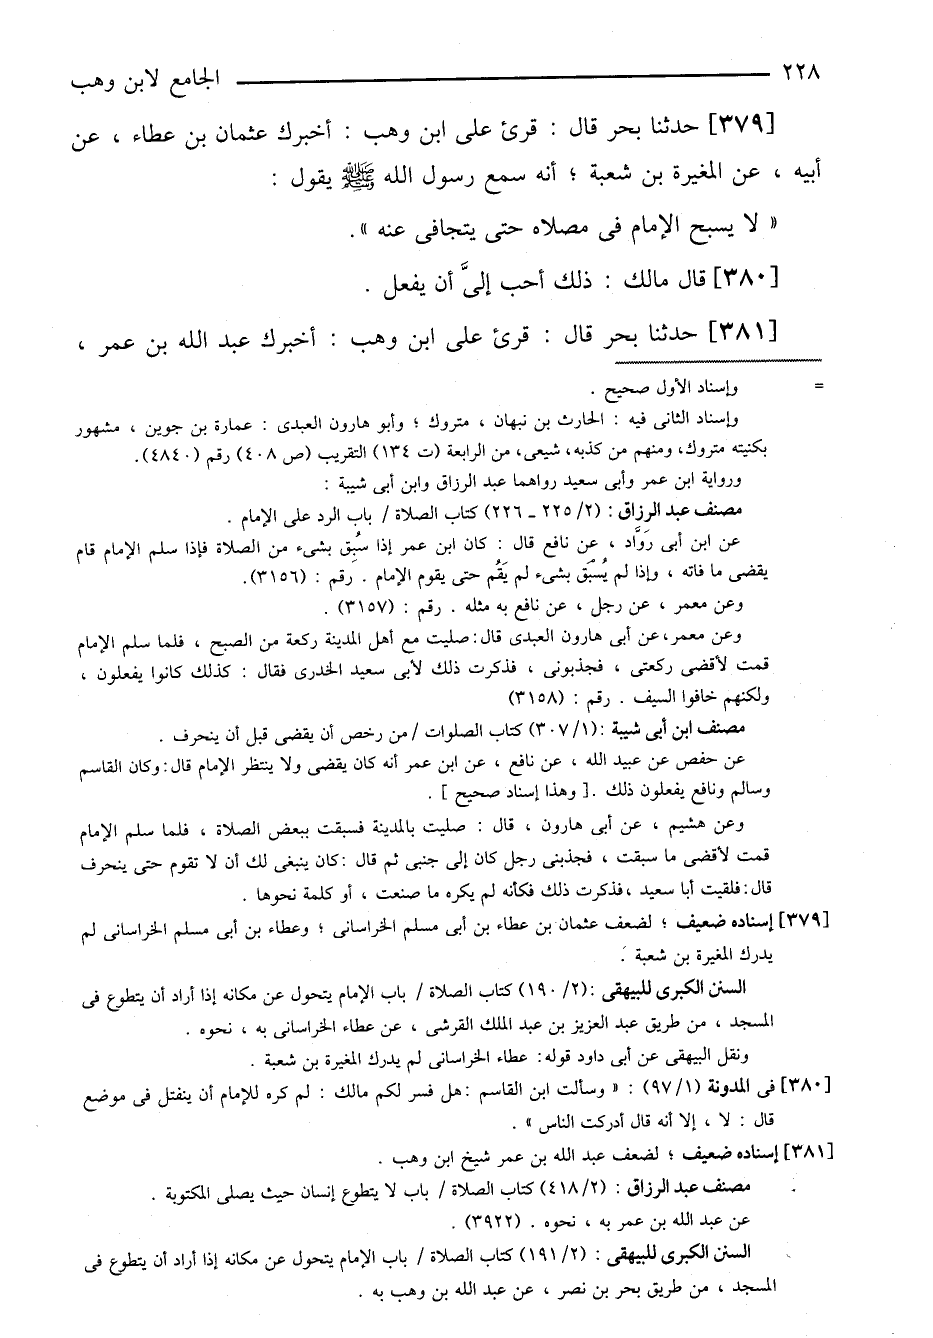 ٢٢٨ الجامع لابن وهب
[٣٧٩] حدثنا بحر قال : قرئ على ابن وهب : أخبرك عثمان بن عطاء ، عن
أبيه ، عن المغيرة بن شعبة ؛ أنه سمع رسول الله ﷺ يقول :
« لا يسبح الإمام فى مصلاه حتى يتجافى عنه ».
[٣٨٠] قال مالك : ذلك أحب إلىَّ أن يفعل .
[٣٨١] حدثنا بحر قال : قرئ على ابن وهب : أخبرك عبد الله بن عمر ،
= وإسناد الأول صحيح .
وإسناد الثانى فيه : الحارث بن نبهان ، متروك ؛ وأبو هارون العبدى : عمارة بن جوين ، مشهور
بكنيته متروك، ومنهم من كذبه، شيعى، من الرابعة (ت ١٣٤) التقريب (ص ٤٠٨) رقم (٤٨٤٠).
ورواية ابن عمر وأبى سعيد رواهما عبد الرزاق وابن أبى شيبة :
مصنف عبد الرزاق : (٢/ ٢٢٥ ـ ٢٢٦) كتاب الصلاة / باب الرد على الإمام .
عن ابن أبى رَوَّاد ، عن نافع قال : كان ابن عمر إذا سُبِق بشىء من الصلاة فإذا سلم الإمام قام
يقضى ما فاته ، وإذا لم يُسْبَق بشىء لم يَقُم حتى يقوم الإمام . رقم : (٣١٥٦).
وعن معمر ، عن رجل ، عن نافع به مثله . رقم : (٣١٥٧) .
وعن معمر، عن أبى هارون العبدى قال: صليت مع أهل المدينة ركعة من الصبح ، فلما سلم الإمام
قمت لأقضى ركعتى ، فجذبونى ، فذكرت ذلك لأبى سعيد الخدرى فقال : كذلك كانوا يفعلون ،
ولكنهم خافوا السيف . رقم : (٣١٥٨)
مصنف ابن أبى شيبة :(١/ ٣٠٧) كتاب الصلوات / من رخص أن يقضى قبل أن ينحرف .
عن حفص عن عبيد الله ، عن نافع ، عن ابن عمر أنه كان يقضى ولا ينتظر الإمام قال: وكان القاسم
وسالم ونافع يفعلون ذلك .[ وهذا إسناد صحيح ] .
وعن هشيم ، عن أبى هارون ، قال : صليت بالمدينة فسبقت ببعض الصلاة ، فلما سلم الإمام
قمت لأقضى ما سبقت ، فجذبنى رجل كان إلى جنبى ثم قال :كان ينبغى لك أن لا تقوم حتى ينحرف
قال: فلقيت أبا سعيد ،فذكرت ذلك فكأنه لم يكره ما صنعت ، أو كلمة نحوها .
[٣٧٩] إسناده ضعيف ؛ لضعف عثمان بن عطاء بن أبى مسلم الخراسانى ؛ وعطاء بن أبى مسلم الخراسانى لم
يدرك المغيرة بن شعبة .
السنن الكبرى للبيهقى :(٢/ ١٩٠) كتاب الصلاة / باب الإمام يتحول عن مكانه إذا أراد أن يتطوع فى
المسجد ، من طريق عبد العزيز بن عبد الملك القرشى ، عن عطاء الخراسانى به ، نحوه .
ونقل البيهقى عن أبى داود قوله: عطاء الخراسانى لم يدرك المغيرة بن شعبة .
[٣٨٠] فى المدونة (١/ ٩٧) : « وسألت ابن القاسم :هل فسر لكم مالك : لم كره للإمام أن ينفتل فى موضع
قال : لا ، إلا أنه قال أدركت الناس » .
[٣٨١] إسناده ضعيف ؛ لضعف عبد الله بن عمر شيخ ابن وهب .
مصنف عبد الرزاق : (٢/ ٤١٨) كتاب الصلاة / باب لا يتطوع إنسان حيث يصلى المكتوبة .
عن عبد الله بن عمر به ، نحوه . (٣٩٢٢) .
السنن الكبرى للبيهقى : (٢/ ١٩١) كتاب الصلاة / باب الإمام يتحول عن مكانه إذا أراد أن يتطوع فى
المسجد ، من طريق بحر بن نصر ، عن عبد الله بن وهب به .